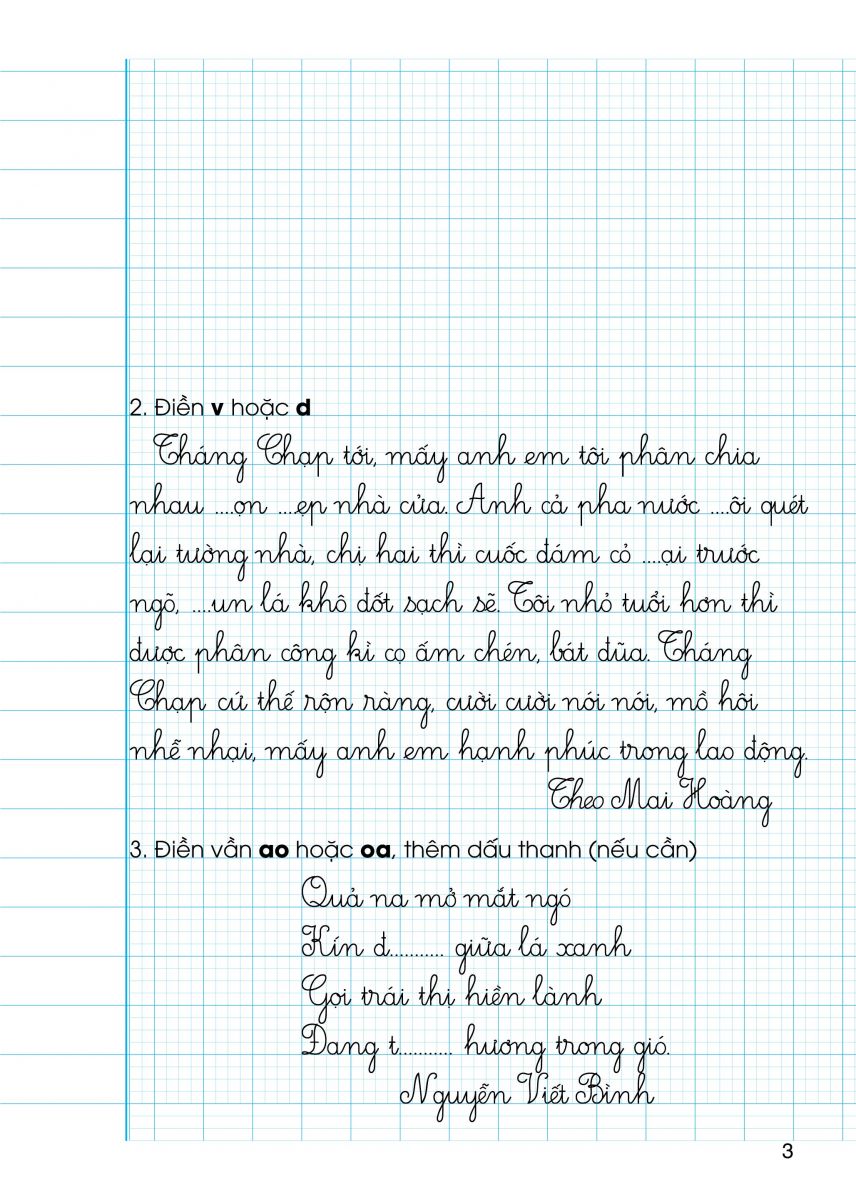 2. Điền v hoặc d
Tháng Chạp tới, mấy anh em tôi phân chia
nhau ....ọn ....ẹp nhà cửa. Anh cả pha nước ....ôi quét
lại tường nhà, chị hai thì cuốc đám cỏ ....ại trước
ngõ, ....un lá khô đốt sạch sẽ. Tôi nhỏ tuổi hơn thì
được phân công kì cọ ấm chén, bát đũa. Tháng
Chạp cứ thế rộn ràng, cười cười nói nói, mồ hôi
nhễ nhại, mấy anh em hạnh phúc trong lao động.
Theo Mai Hoàng
3. Điền vần ao hoặc oa, thêm dấu thanh (nếu cần)
Quả na mở mắt ngó
Kín đ........... giữa lá xanh
Gọi trái thị hiền lành
Đang t........... hương trong gió.
Nguyễn Viết Bình
3